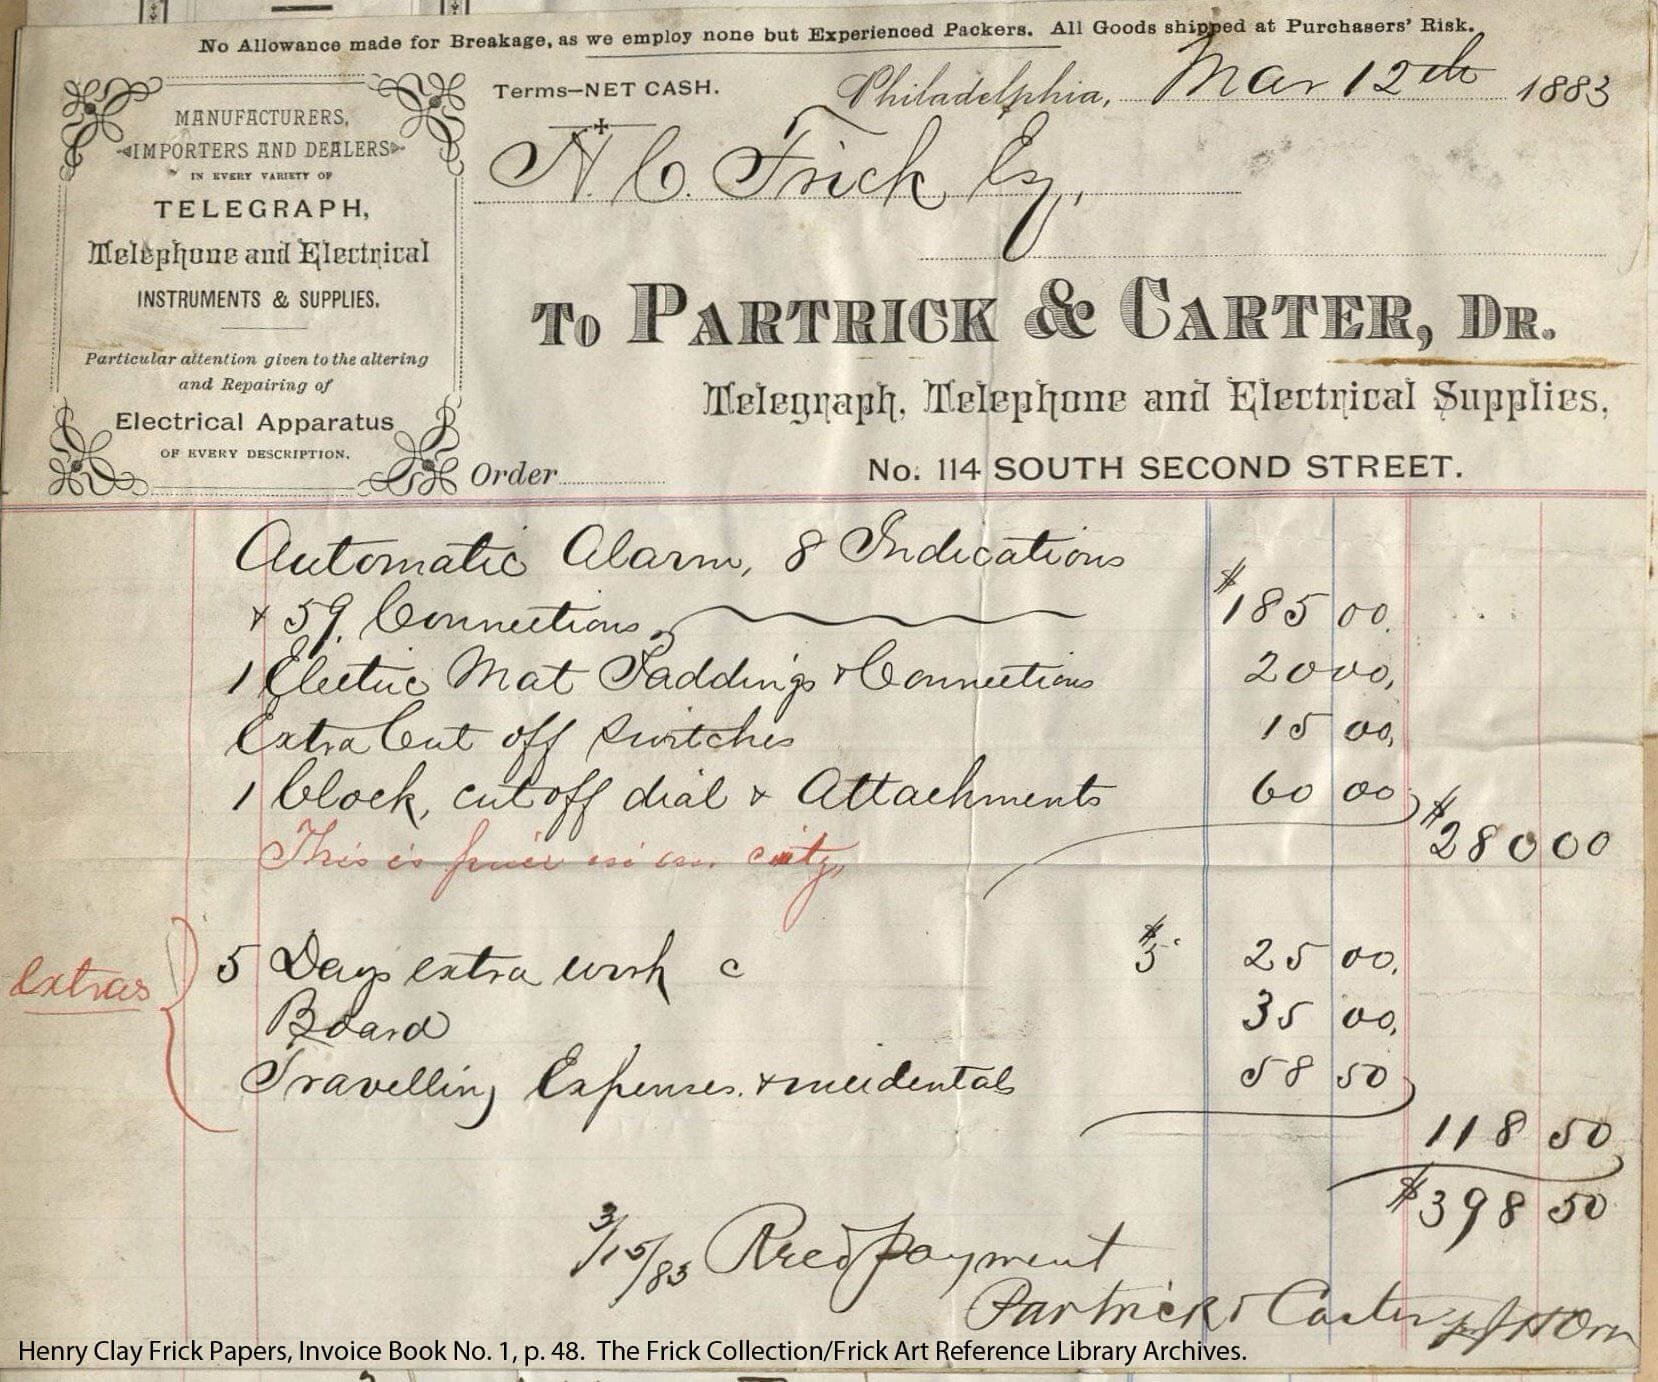 No Allowance made for Breakage, as we employ none but Experienced Packers. All Goods shipped at Purchasers' Risk.
MANUFACTURERS,
IMPORTERS AND DEALERS
IN EVERY VARIETY OF
TELEGRAPH,
Telephone and Electrical
INSTRUMENTS & SUPPLIES.
Particular attention given to the altering
and Repairing of
Electrical Apparatus
OF EVERY DESCRIPTION.
Terms—NET CASH.
Philadelphia, Mar 12th 1883
H. C. Frick Esq,
To PARTRICK & CARTER, DR.
Telegraph, Telephone and Electrical Supplies,
Order No. 114 SOUTH SECOND STREET.
Automatic Alarm, 8 Indications
+ 59. Connections $185 00.
1 Electric Mat Paddings + Connections 20 00,
Extra Cut off switches 15 00,
1 Clock, cut off dial + Attachments 60 00
$280 00
This is price in our city,
extras
5 Days extra work c $5. 25 00.
Board 35 00.
Travelling Expenses. + incidentals 58 50
118 50
$398 50
3/15/83 Recd payment
Partrick & Carter
Henry Clay Frick Papers, Invoice Book No. 1, p. 48. The Frick Collection/Frick Art Reference Library Archives.